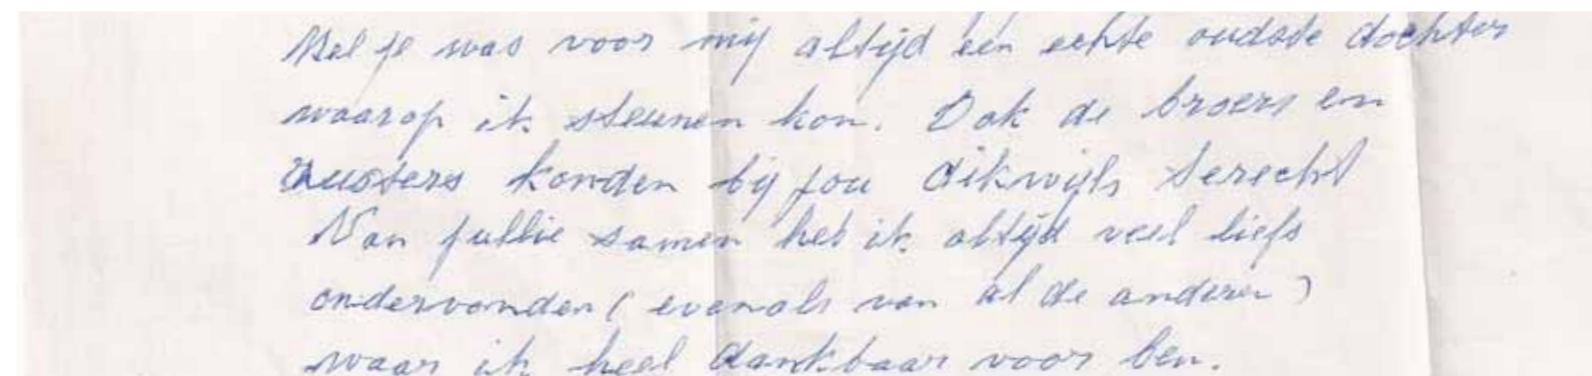 Mel je was voor mij altijd een echte oudste dochter
waarop ik steunen kon. Ook de broers en
zusters konden bij jou dikwijls terecht
Van jullie samen heb ik altijd veel liefs
ondervonden (evenals van al de anderen)
waar ik heel dankbaar voor ben.